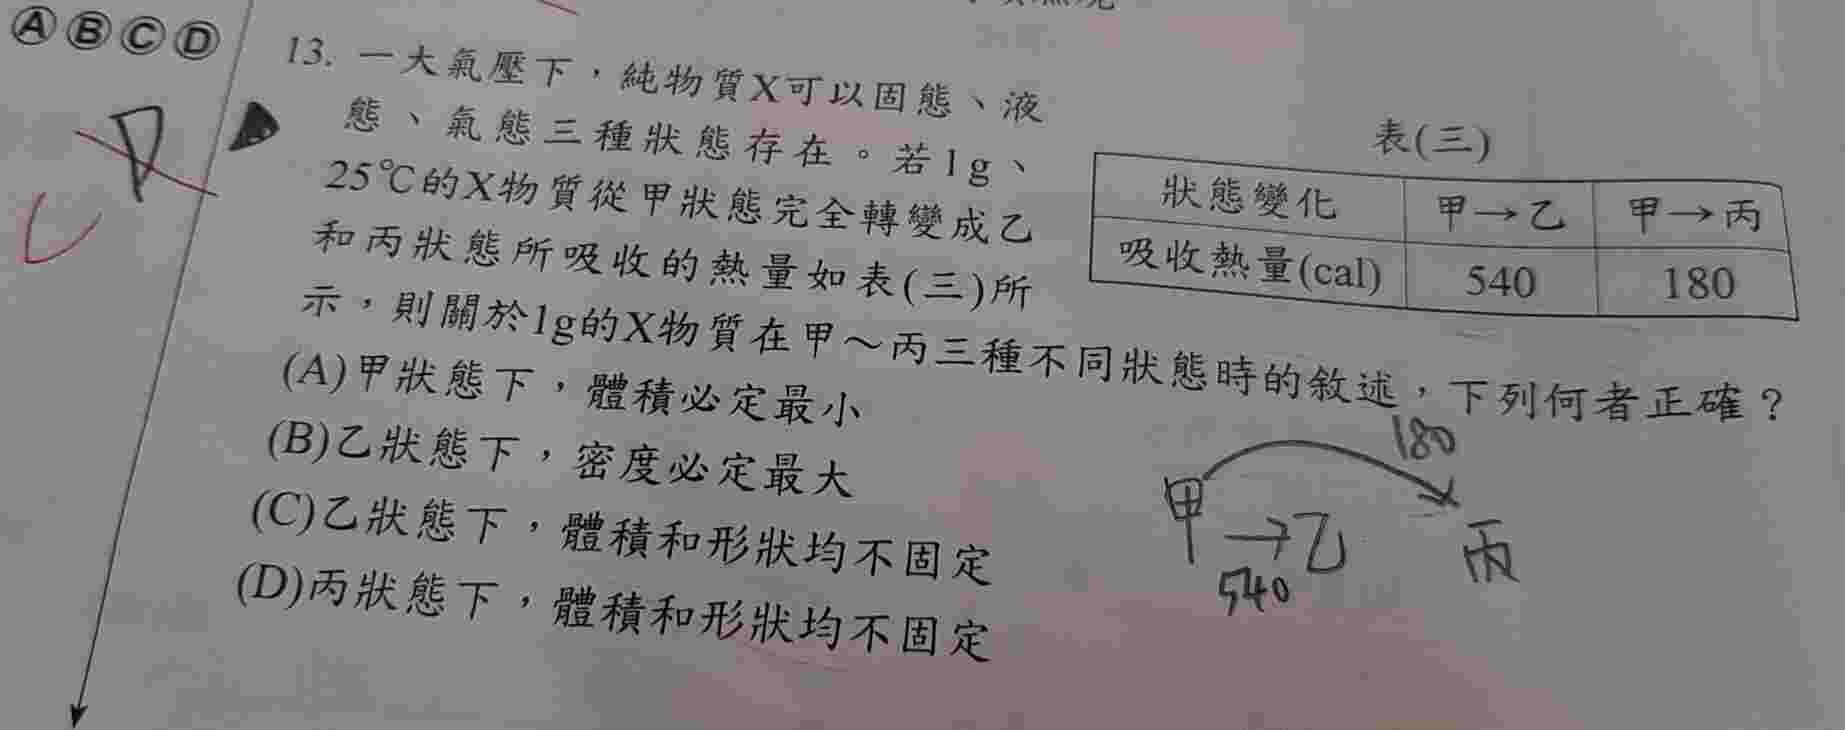 ⒶⒷⒸⒹ
D
C
13. 一大氣壓下，純物質X可以固態、液
態、氣態三種狀態存在。若1g、
25℃的X物質從甲狀態完全轉變成乙
和丙狀態所吸收的熱量如表(三)所
示，則關於1g的X物質在甲～丙三種不同狀態時的敘述，下列何者正確？
表(三)
狀態變化 甲→乙 甲→丙
吸收熱量(cal) 540 180
(A)甲狀態下，體積必定最小
(B)乙狀態下，密度必定最大
(C)乙狀態下，體積和形狀均不固定
(D)丙狀態下，體積和形狀均不固定
180
甲→乙 丙
540